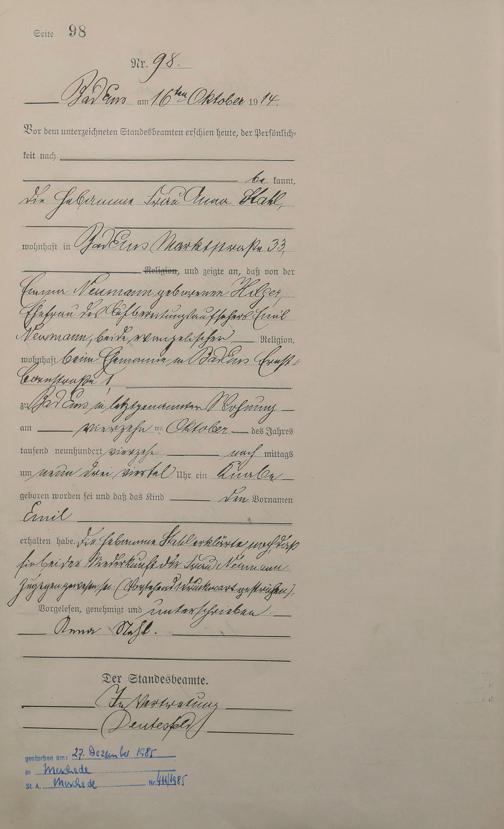 Seite 98
Nr. 98.
Bad Ems am 16ten Oktober 1914.
Vor dem unterzeichneten Standesbeamten erschien heute, der Persönlich-
keit nach
be kannt,
die Hebamme Frau Anna Stahl,
wohnhaft in Bad Ems Marktstraße 33,
Religion, und zeigte an, daß von der
Emma Neumann geborenen
Ehefrau des Emil
Neumann, beide evangelischer Religion,
wohnhaft beim Ehemanne in Bad Ems Ernst-
bornstraße 1,
zu Bad Ems in letztgenannter Wohnung
am vierzehn ten Oktober des Jahres
tausend neunhundert vierzehn nach mittags
um neun drei viertel Uhr ein Knabe
geboren worden sei und daß das Kind den Vornamen
Emil
erhalten habe. Die Hebamme Stahl erklärte noch, daß
sie bei der Niederkunft der Frau Neumann
zugegen gewesen sei. (Vorstehend 1 Druckwort gestrichen).
Vorgelesen, genehmigt und unterschrieben
Anna Stahl.
Der Standesbeamte.
In Vertretung
gestorben am: 27. Dezember 1985
in Meschede
St. A. Meschede Nr. /1985